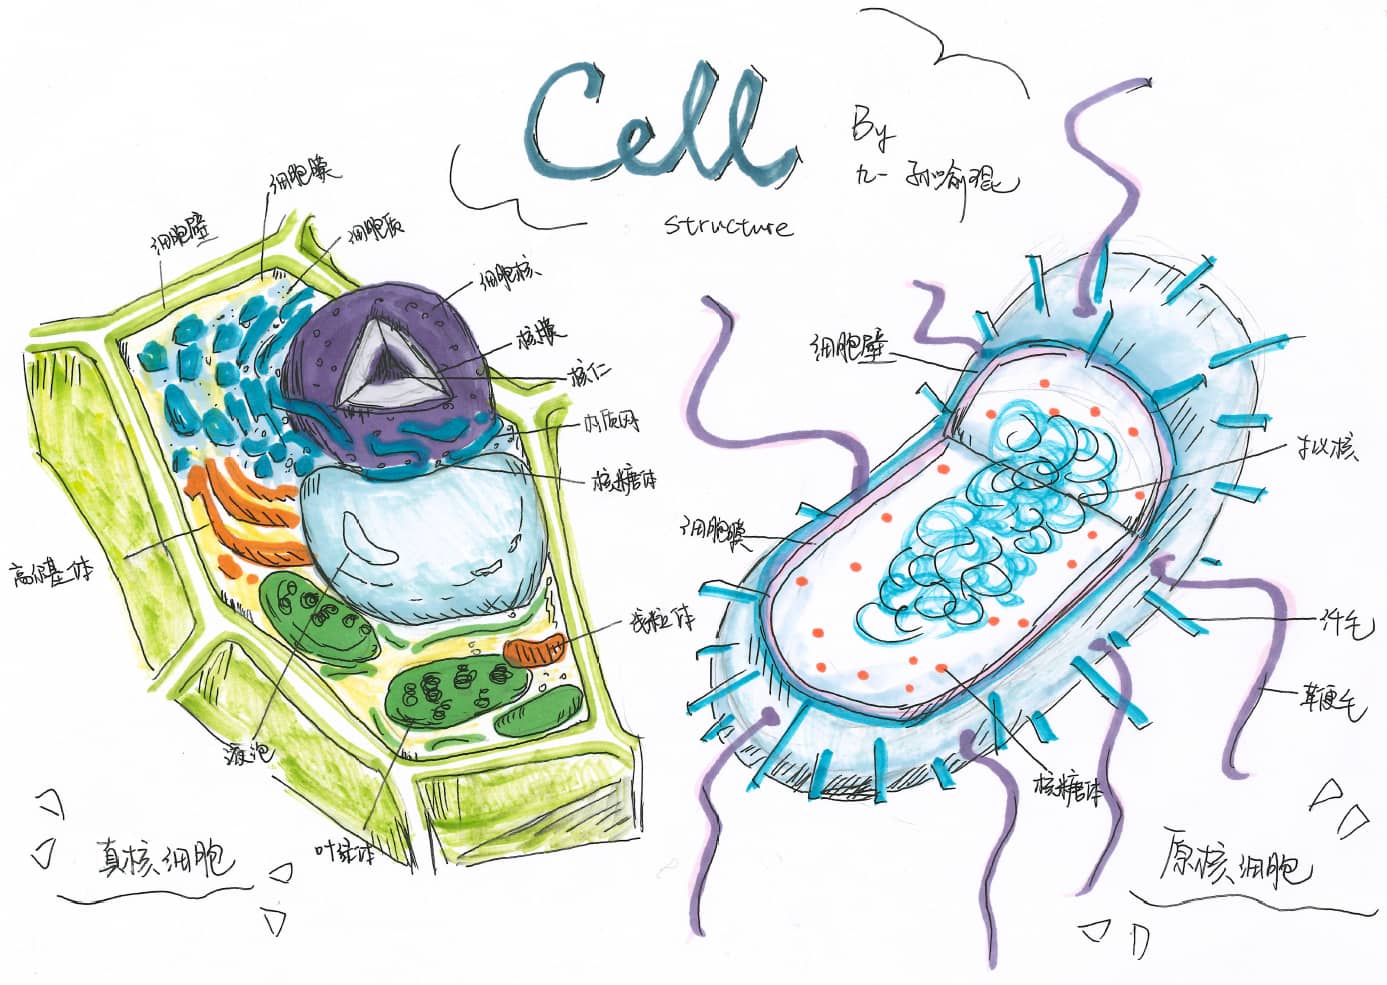 Cell
structure
By
九一 孙喻琨
细胞膜
细胞壁
细胞质
细胞核
核膜
核仁
内质网
核糖体
高尔基体
线粒体
液泡
叶绿体
真核细胞
细胞壁
拟核
细胞膜
纤毛
鞭毛
核糖体
原核细胞